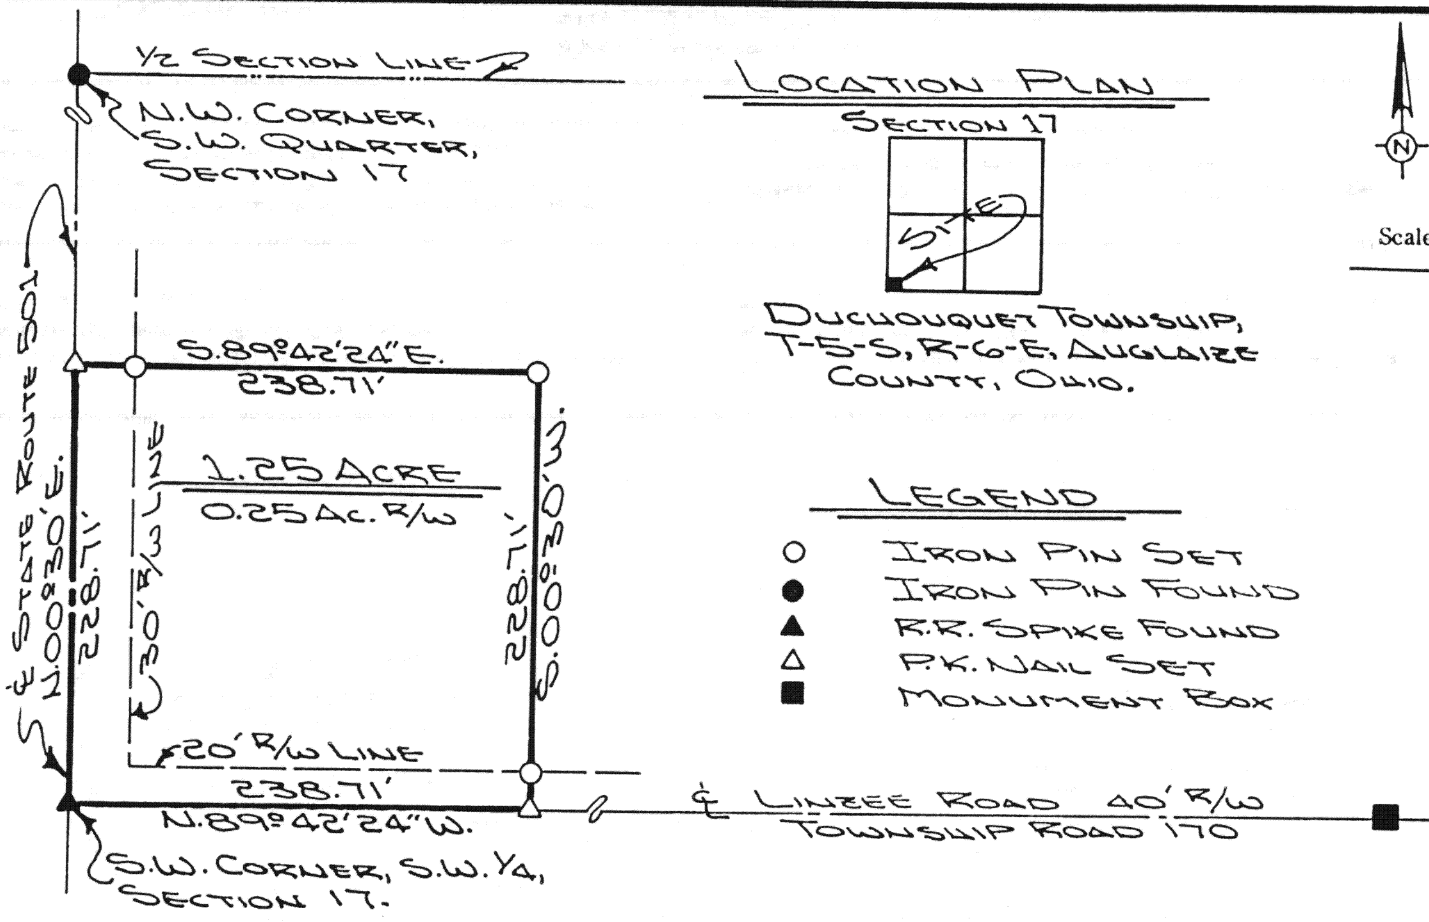 1/2 SECTION LINE
N.W. CORNER,
S.W. QUARTER,
SECTION 17
LOCATION PLAN
SECTION 17
SITE
DUCHOUQUET TOWNSHIP,
T-5-S, R-6-E, AUGLAIZE
COUNTY, OHIO.
N
Scale
℄ STATE ROUTE 501
N.00°30'E.
228.71'
S.89°42'24"E.
238.71'
30' R/W LINE
1.25 ACRE
0.25 AC. R/W
228.71'
S.00°30'W.
20' R/W LINE
238.71'
N.89°42'24"W.
S.W. CORNER, S.W. 1/4,
SECTION 17.
LEGEND
IRON PIN SET
IRON PIN FOUND
R.R. SPIKE FOUND
P.K. NAIL SET
MONUMENT BOX
℄ LINZEE ROAD 40' R/W
TOWNSHIP ROAD 170